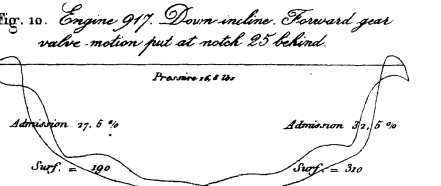 Fig. 10. Engine 917. Down incline. Forward gear
valve motion put at notch 25 behind.
Pressure 16,8 lbs
Admission 27,5 %
Admission 32,5 %
Surf. = 190
Surf. = 310